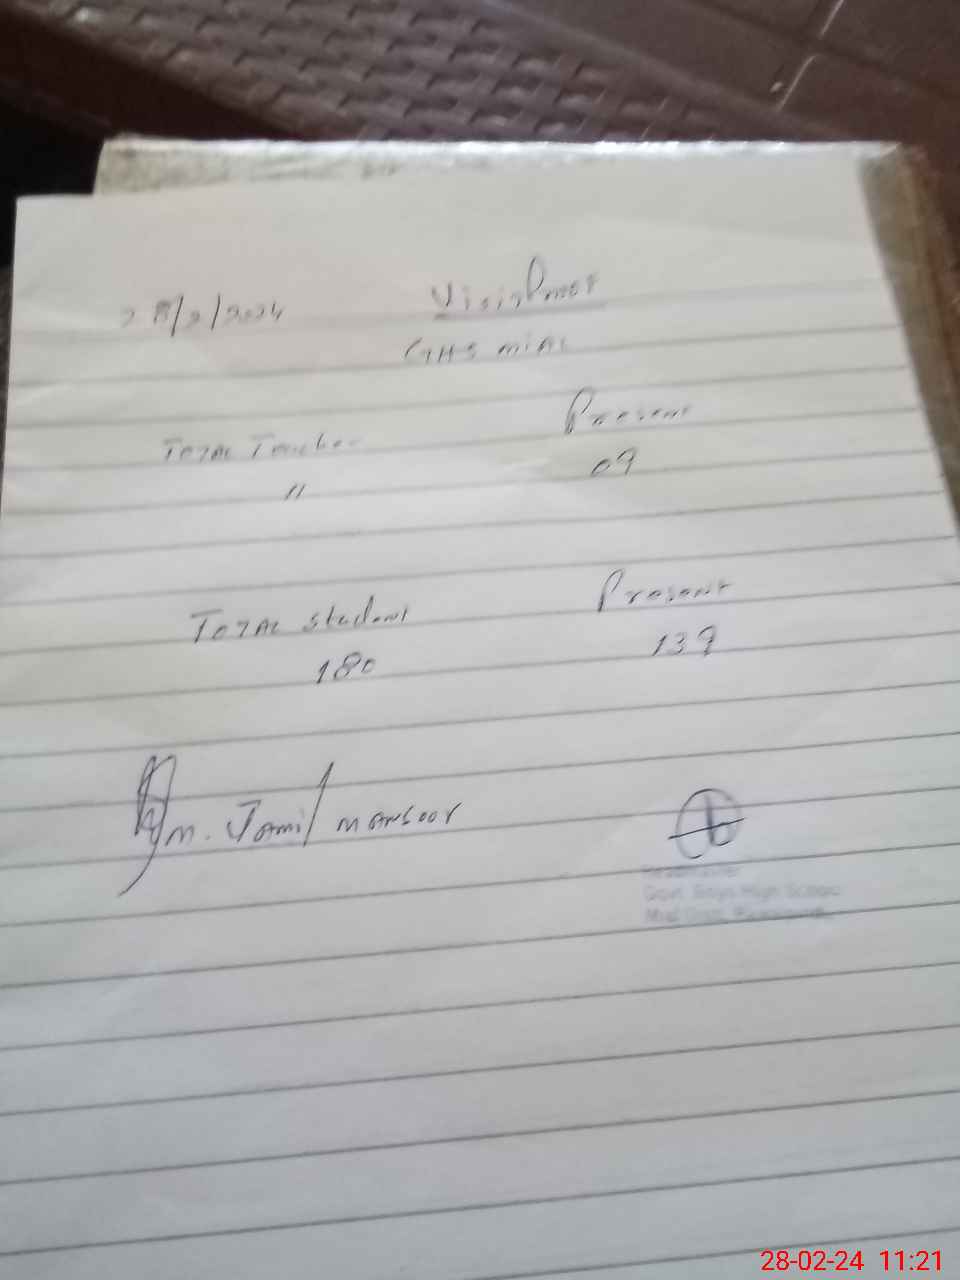 28/2/2024 Visit Proof
GHS mial
Total Teacher Present
11 09
Total student Present
180 139
m. Jamil mansoor
Headmaster
Govt. Boys High School
28-02-24 11:21